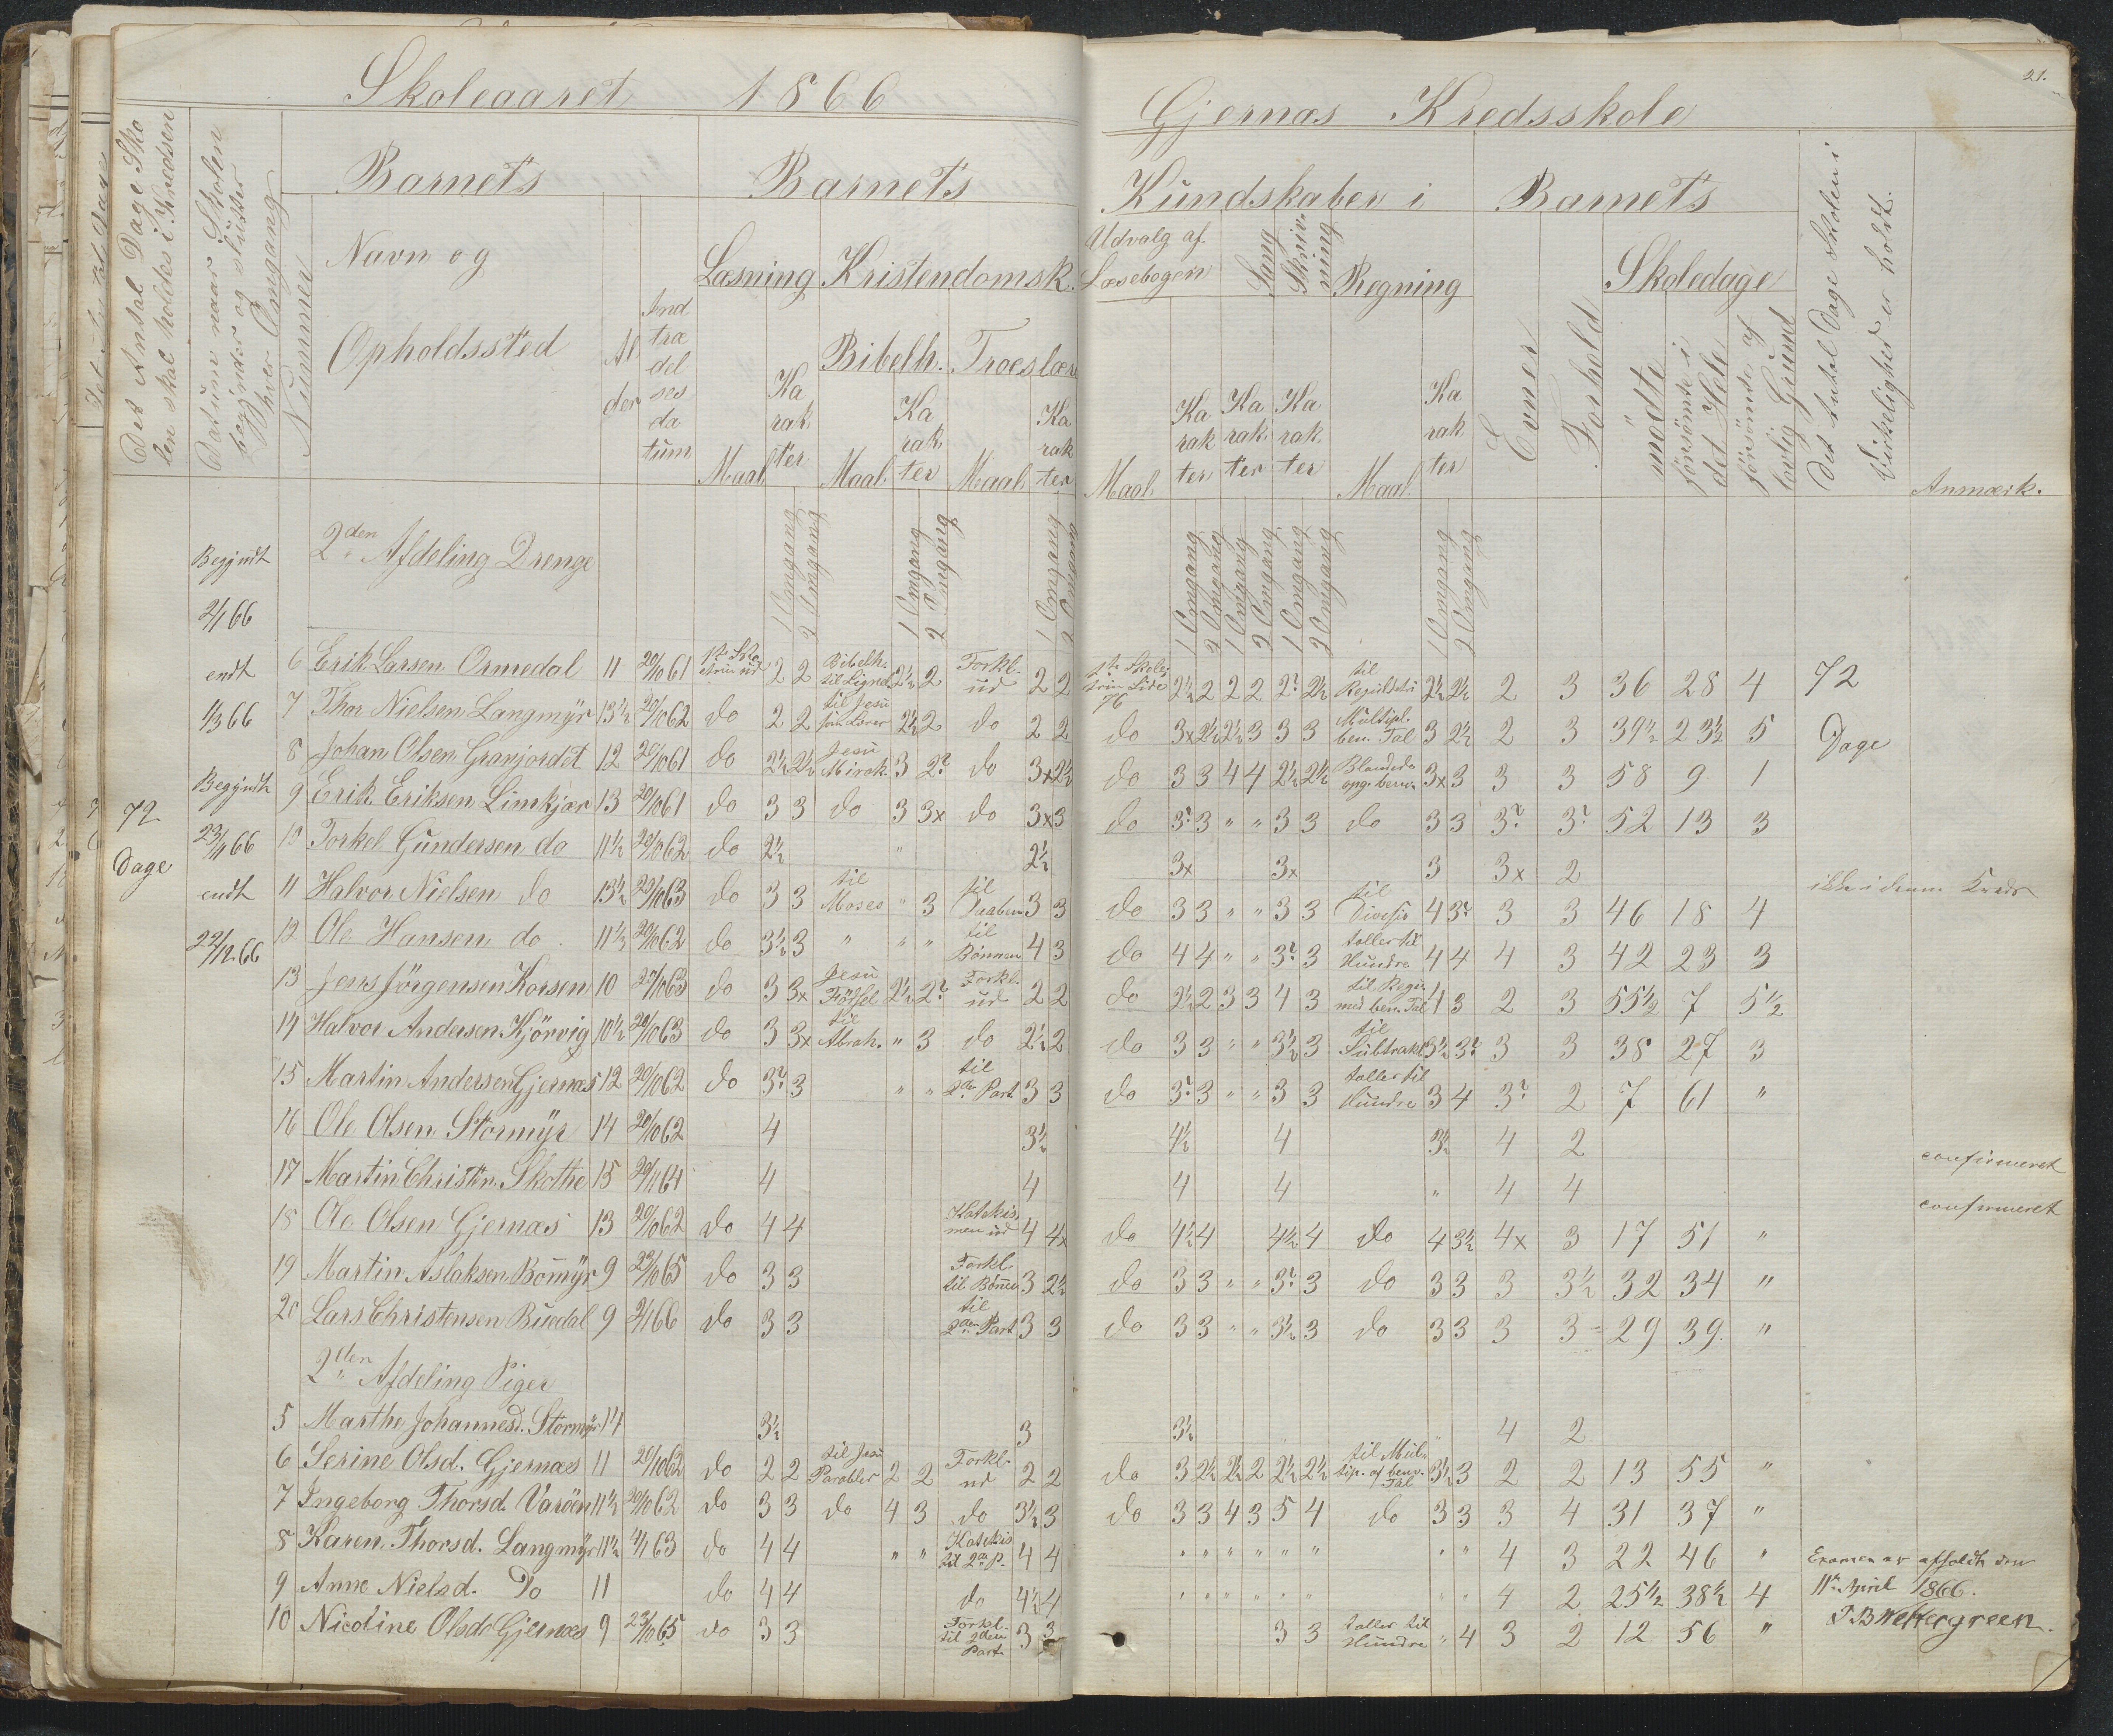 Skoleaaret 1866
Gjernæs Kredsskole
21.
Det Antal Dage Sko
len skal holdes i Kredsen
Datum naar Skolen
begynder og slutter
hver Omgang
Nummer
Barnets
Navn og
Opholdssted
Al
der
Ind
træ
del
ses
da
tum
Barnets
Kundskaber i
Læsning
Kristendomsk.
Bibelh.
Troeslære
Maal
Ka
rak
ter
Maal
Ka
rak
ter
Maal
Ka
rak
ter
Udvalg af
Læsebogen
Sang
Skriv
ning
Regning
Maal
Ka
rak
ter
Ka
rak
ter
Ka
rak
ter
Maal
Ka
rak
ter
Barnets
Evner
Forhold
Skoledage
mödte
forsömte i
det Hele
forsömte af
lovlig Grund
Det Antal Dage Skolen i
Virkelighed er holdt.
Anmærk.
1 Omgang 2 Omgang 1 Omgang 2 Omgang 1 Omgang 2 Omgang
1 Omgang 2 Omgang 1 Omgang 2 Omgang 1 Omgang 2 Omgang 1 Omgang 2 Omgang
72
Dage
Begyndt
2/1 66
endt
1/3 66
Begyndt
23/11 66
endt
22/12 66
2den Afdeling Drenge
6 Erik Larsen Ormedal 11 20/10 61 2 2 Bibelh. til Lignel. 2½ 2 Forkl. ud 2 2 1te Skoletrin Side 76 2½ 2 2 2 2? 2½ til Reguldetri 2½ 2½ 2 3 36 28 4 72
7 Thor Nielsen Langmÿr 13½ 20/10 62 do 2 2 til Jesu 2½ 2 do 2 2 do 3x 2½ 2½ 3 3 3 Multipl. ben. Tal 3 2½ 2 3 39½ 23½ 5 Dage
8 Johan Olsen Granjordet 12 20/10 61 do 2½ 2½ Jesu Mirak. 3 2? do 3x 2½ do 3 3 4 4 2½ 2½ Blandede opg. benv. 3x 3 3 3 58 9 1
9 Erik Eriksen Limkjær 13 20/10 61 do 3 3 do 3 3x do 3x 3 do 3? 3 " " 3 3 do 3 3 3? 3? 52 13 3
10 Torkel Gundersen do 11½ 20/10 62 do 2½ " 2½ 3x 3x 3 3x 2 ikke i denne Kreds
11 Halvor Nielsen do 13½ 20/10 63 do 3 3 til Moses " 3 til Daaben 3 3 do 3 3 " " 3 3 til Division 4 3? 3 3 46 18 4
12 Ole Hansen do. 11½ 20/10 62 do 3½ 3 " " " til Bönnen 4 3 do 4 4 " " 3? 3 tæller til Hundre 4 4 4 3 42 23 3
13 Jens Jörgensen Korsen 10 27/10 63 do 3 3x Jesu Födsel 2½ 2? Forkl. ud 2 2 do 2½ 2 3 3 4 3 til Regn. med ben. Tal 4 3 2 3 55½ 7 5½
14 Halvor Andersen Kjörvig 10½ 20/10 63 do 3 3x til Abrah. " 3 do 2½ 2 do 3 3 " " 3½ 3 til Subtrakt. 3½ 3? 3 3 38 27 3
15 Martin Andersen Gjernæs 12 20/10 62 do 3? 3 " " til 2den Part 3 3 do 3? 3 " " 3 3 tæller til Hundre 3 4 3? 2 7 61 "
16 Ole Olsen Stormÿr 14 20/10 62 4 3½ 4½ 4 3½ 4 2 confirmeret
17 Martin Christen. Skothe 15 20/11 64 4 4 4 4 " 4 4 confirmeret
18 Ole Olsen Gjernæs 13 20/10 62 do 4 4 Katekismen ud 4 4x do 4½ 4 4½ 4 do 4 3½ 4x 3 17 51 "
19 Martin Aslaksen Bommÿr 9 23/10 65 do 3 3 Forkl. til Bönnen 3 2½ do 3 3 " " 3? 3 do 3 3 3 3½ 32 34 "
20 Lars Christensen Buedal 9 2/1 66 do 3 3 til 2den Part 3 3 do 3 3 " " 3½ 3 do 3 3 3 3 29 39 "
2den Afdeling Piger
5 Marthe Johannesd. Stormÿr 14 3½ 3 3½ " 4 2
6 Serine Olsd. Gjernæs 11 20/10 62 do 2 2 til Jesu Parabler 2 2 Forkl. ud 2 2 do 3 2½ 2½ 2 2½ 2½ til Multip. af benv. Tal 3½ 3 2 2 13 55 "
7 Ingeborg Thorsd. Varöen 11½ 20/10 62 do 3 3 do 4 3 do 3½ 3 do 3 3 4 3 5 4 do 3 3 3 4 31 37 "
8 Karen Thorsd. Langmÿr 11½ 4/1 63 do 4 4 " " Katekis til 2den P. 4 4 " " " " " " " " 4 3 22 46 "
9 Anne Nielsd. Do 11 do 4 4 do 4½ 4 " " " " " " " " 4 2 25½ 38½ 4
10 Nicoline Olsd. Gjernæs 9 23/10 65 do 3 3 Forkl. til 2den Part 3 3 3 3 tæller til Hundre " 4 3 2 12 56 "
Examen er afholdt den
11te April 1866.
Wettergreen.